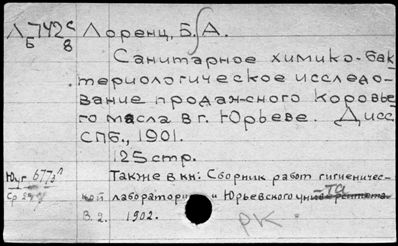 Л 742 с
Б 8
Лоренц, Б. А.
Санитарное химико-бак
териологическое исследо-
вание продажного коровье
го масла в г. Юрьеве. Дисс.
СПб., 1901.
125 стр.
Также в кн: Сборник работ гигиеничес-
кой лаборатории Юрьевского
В. 2. 1902.
РК.